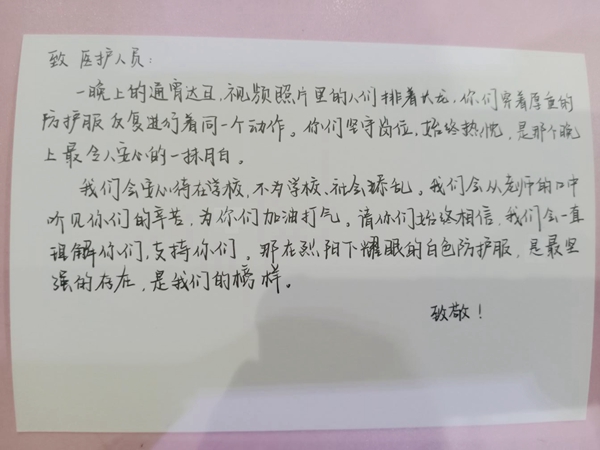 致 医护人员：
一晚上的通宵达旦，视频照片里的人们排着长龙，你们穿着厚重的
防护服反复进行着同一个动作。你们坚守岗位，始终热忱，是那个晚
上最令人安心的一抹月白。
我们会安心待在学校，不为学校、社会添乱。我们会从老师的口中
听见你们的辛苦，为你们加油打气。请你们始终相信，我们会一直
理解你们，支持你们。那在烈阳下耀眼的白色防护服，是最坚
强的存在，是我们的榜样。
致敬！